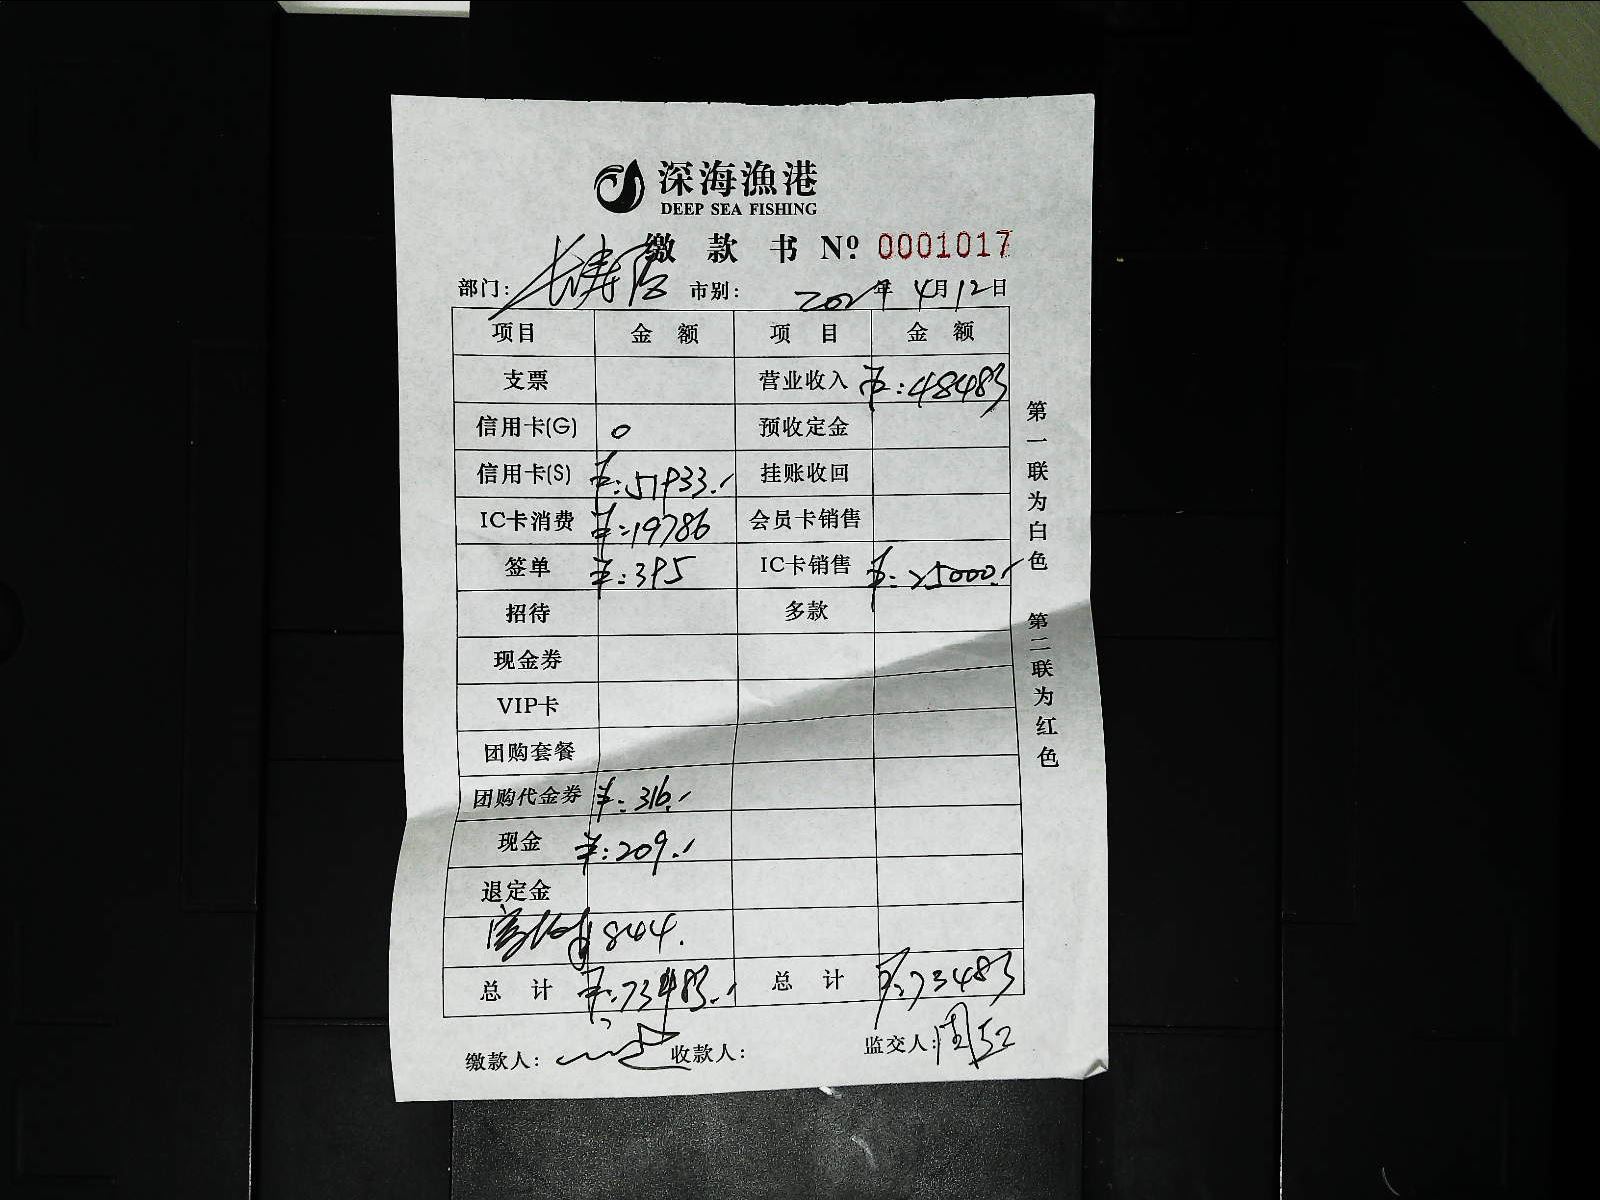 深海渔港
DEEP SEA FISHING
缴款书 Nº: 0001017
部门: 长寿店 市别: 2021年4月12日
项目 金额 项目 金额
支票 营业收入 ¥:48483
信用卡(G) 0 预收定金
信用卡(S) ¥:51933.- 挂账收回
IC卡消费 ¥:19786 会员卡销售
签单 ¥:395 IC卡销售 ¥:25000.-
招待 多款
现金券
VIP卡
团购套餐
团购代金券 ¥:316.-
现金 ¥:209.-
退定金
844.
总计 ¥:73483.- 总计 ¥:73483
缴款人: 收款人: 监交人:
第一联为白色 第二联为红色